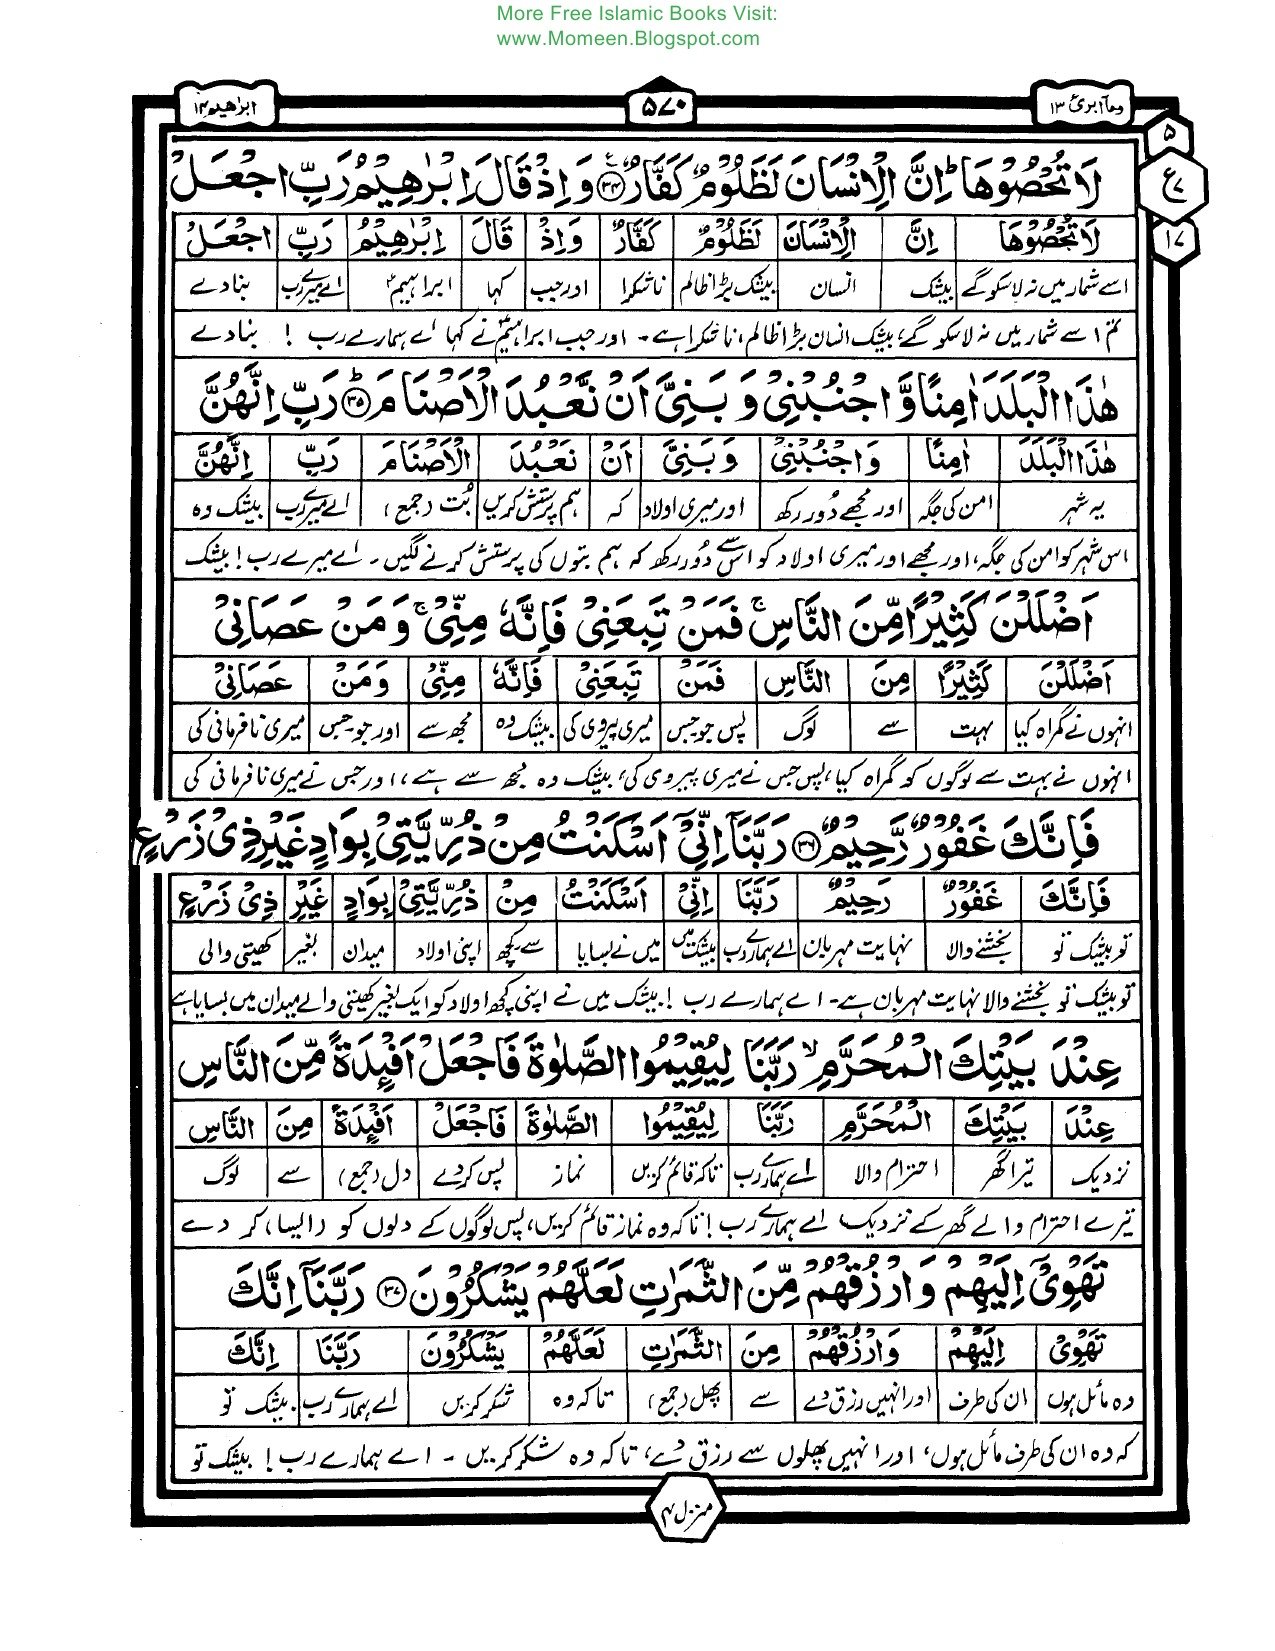 More Free Islamic Books Visit:
www.Momeen.Blogspot.com
ومآ ابرئ ١٣ ٥٧٠ ابرٰهیم ١٤
٥
ع ٧
١٧
لَا تُحْصُوْهَا ؕ اِنَّ الْاِنْسَانَ لَظَلُوْمٌ كَفَّارٌ ﴿٣٤﴾ وَ اِذْ قَالَ اِبْرٰهِیْمُ رَبِّ اجْعَلْ
لَا تُحْصُوْهَا اِنَّ الْاِنْسَانَ لَظَلُوْمٌ كَفَّارٌ وَاِذْ قَالَ اِبْرٰهِیْمُ رَبِّ اجْعَلْ
اسے شمار میں نہ لا سکو گے بیشک انسان بیشک بڑا ظالم ناشکرا اور جب کہا ابراہیمؑ اے میرے رب بنا دے
تم اسے شمار میں نہ لا سکو گے، بیشک انسان بڑا ظالم، ناشکرا ہے۔ اور جب ابراہیمؑ نے کہا اے ہمارے رب ! بنا دے
هٰذَا الْبَلَدَ اٰمِنًا وَّ اجْنُبْنِیْ وَ بَنِیَّ اَنْ نَّعْبُدَ الْاَصْنَامَ ؕ﴿٣٥﴾ رَبِّ اِنَّهُنَّ
هٰذَا الْبَلَدَ اٰمِنًا وَاجْنُبْنِیْ وَ بَنِیَّ اَنْ نَعْبُدَ الْاَصْنَامَ رَبِّ اِنَّهُنَّ
یہ شہر امن کی جگہ اور مجھے دُور رکھ اور میری اولاد کہ ہم پرستش کریں بُت (جمع) اے میرے رب بیشک وہ
اس شہر کو امن کی جگہ، اور مجھے اور میری اولاد کو اس سے دُور رکھ کہ ہم بتوں کی پرستش کرنے لگیں۔ اے میرے رب! بیشک
اَضْلَلْنَ كَثِیْرًا مِّنَ النَّاسِ ۚ فَمَنْ تَبِعَنِیْ فَاِنَّهٗ مِنِّیْ ۚ وَ مَنْ عَصَانِیْ
اَضْلَلْنَ كَثِیْرًا مِنَ النَّاسِ فَمَنْ تَبِعَنِیْ فَاِنَّهٗ مِنِّیْ وَ مَنْ عَصَانِیْ
انہوں نے گمراہ کیا بہت سے لوگ پس جو جس میری پیروی کی بیشک وہ مجھ سے اور جو جس میری نافرمانی کی
انہوں نے بہت سے لوگوں کو گمراہ کیا، پس جس نے میری پیروی کی، بیشک وہ مجھ سے ہے، اور جس نے میری نافرمانی کی
فَاِنَّكَ غَفُوْرٌ رَّحِیْمٌ ﴿٣٦﴾ رَبَّنَاۤ اِنِّیْۤ اَسْكَنْتُ مِنْ ذُرِّیَّتِیْ بِوَادٍ غَیْرِ ذِیْ زَرْعٍ
فَاِنَّكَ غَفُوْرٌ رَحِیْمٌ رَبَّنَا اِنِّیْ اَسْكَنْتُ مِنْ ذُرِّیَّتِیْ بِوَادٍ غَیْرِ ذِیْ زَرْعٍ
تو بیشک تو بخشنے والا نہایت مہربان اے ہمارے رب بیشک میں میں نے بسایا سے کچھ اپنی اولاد میدان بغیر کھیتی والی
تو بیشک تو بخشنے والا نہایت مہربان ہے۔ اے ہمارے رب ! بیشک میں نے اپنی کچھ اولاد کو ایک بغیر کھیتی والے میدان میں بسایا ہے
عِنْدَ بَیْتِكَ الْمُحَرَّمِ ۙ رَبَّنَا لِیُقِیْمُوا الصَّلٰوةَ فَاجْعَلْ اَفْىِٕدَةً مِّنَ النَّاسِ
عِنْدَ بَیْتِكَ الْمُحَرَّمِ رَبَّنَا لِیُقِیْمُوا الصَّلٰوةَ فَاجْعَلْ اَفْىِٕدَةً مِنَ النَّاسِ
نزدیک تیرا گھر احترام والا اے ہمارے رب تاکہ قائم کریں نماز پس کر دے دل (جمع) سے لوگ
تیرے احترام والے گھر کے نزدیک اے ہمارے رب ! تاکہ وہ نماز قائم کریں، پس لوگوں کے دلوں کو (ایسا) کر دے
تَهْوِیْۤ اِلَیْهِمْ وَ ارْزُقْهُمْ مِّنَ الثَّمَرٰتِ لَعَلَّهُمْ یَشْكُرُوْنَ ﴿٣٧﴾ رَبَّنَاۤ اِنَّكَ
تَهْوِیْ اِلَیْهِمْ وَارْزُقْهُمْ مِنَ الثَّمَرٰتِ لَعَلَّهُمْ یَشْكُرُوْنَ رَبَّنَا اِنَّكَ
وہ مائل ہوں ان کی طرف اور انہیں رزق دے سے پھل (جمع) تاکہ وہ شکر کریں اے ہمارے رب بیشک تو
کہ وہ ان کی طرف مائل ہوں، اور انہیں پھلوں سے رزق دے، تاکہ وہ شکر کریں ۔ اے ہمارے رب ! بیشک تو
منزل ٣